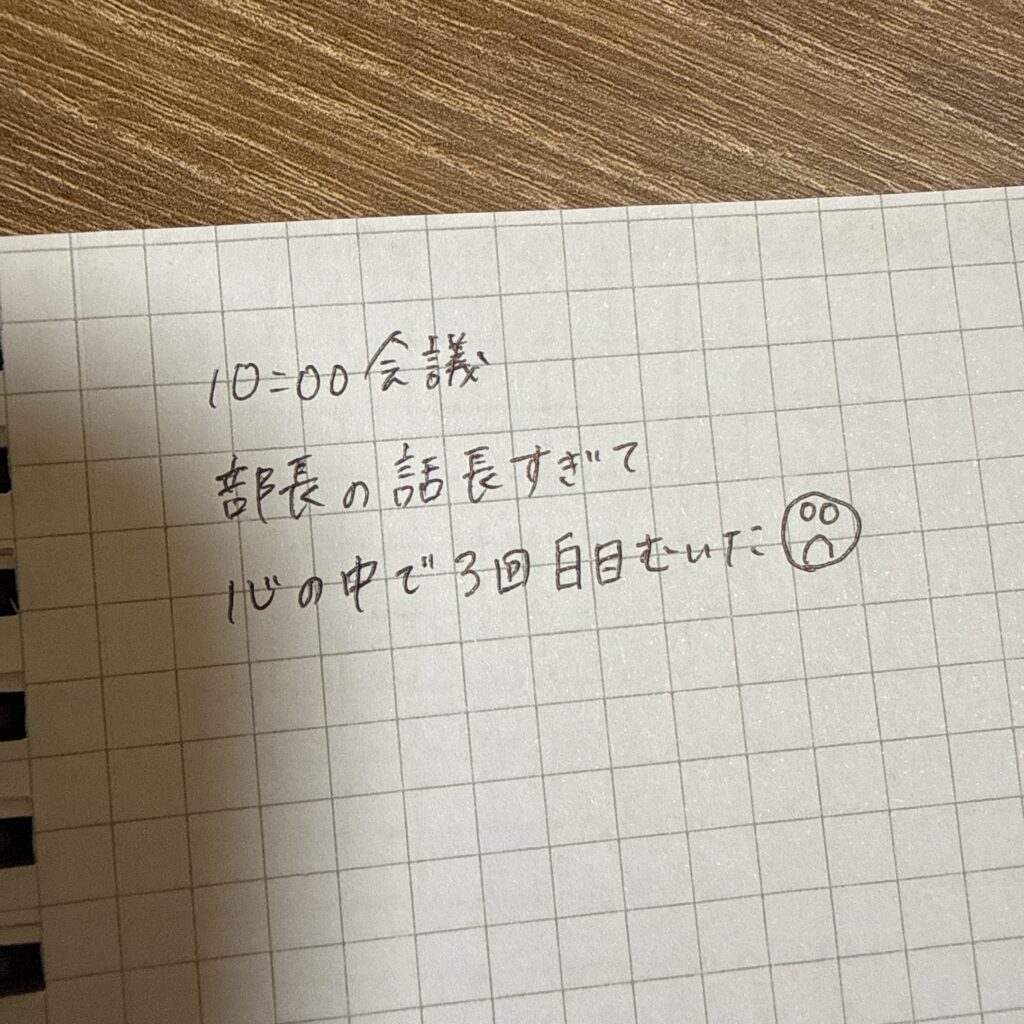 10:00 会議
部長の話長すぎて
心の中で3回白目むいた